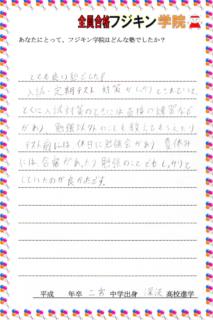 全員合格フジキン学院
あなたにとって、フジキン学院はどんな塾でしたか?
とても良い塾でした。
入試・定期テスト対策がしっかりとされていて、
とくに入試対策のときには面接の練習など
があり、勉強以外のことも教えてもらえたり
テスト前には休日に勉強会があり、夏休み
には、合宿があったり勉強のことをしっかりと
していたのが良かったです。
平成 年卒 二宮 中学出身 深沢 高校進学